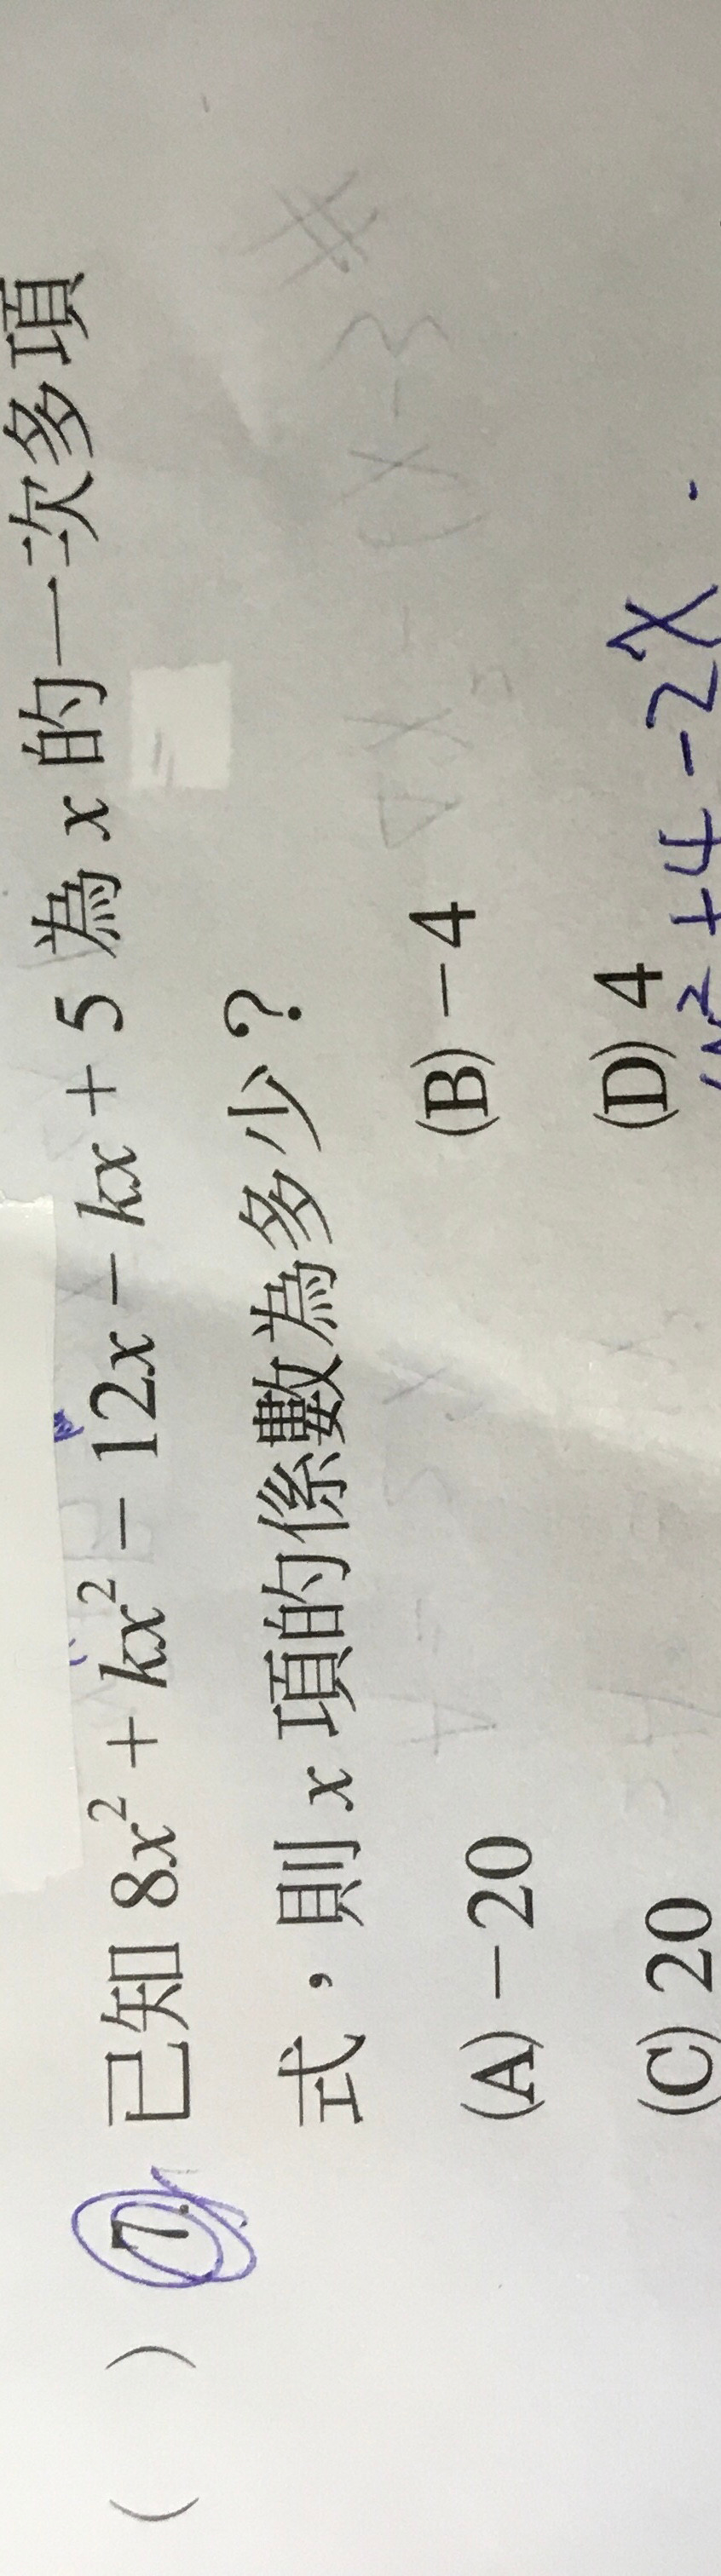 (　) 7. 已知 8x² + kx² − 12x − kx + 5 為 x 的一次多項
式，則 x 項的係數為多少？
(A) −20 (B) −4
(C) 20 (D) 4
² + 4 - 2x